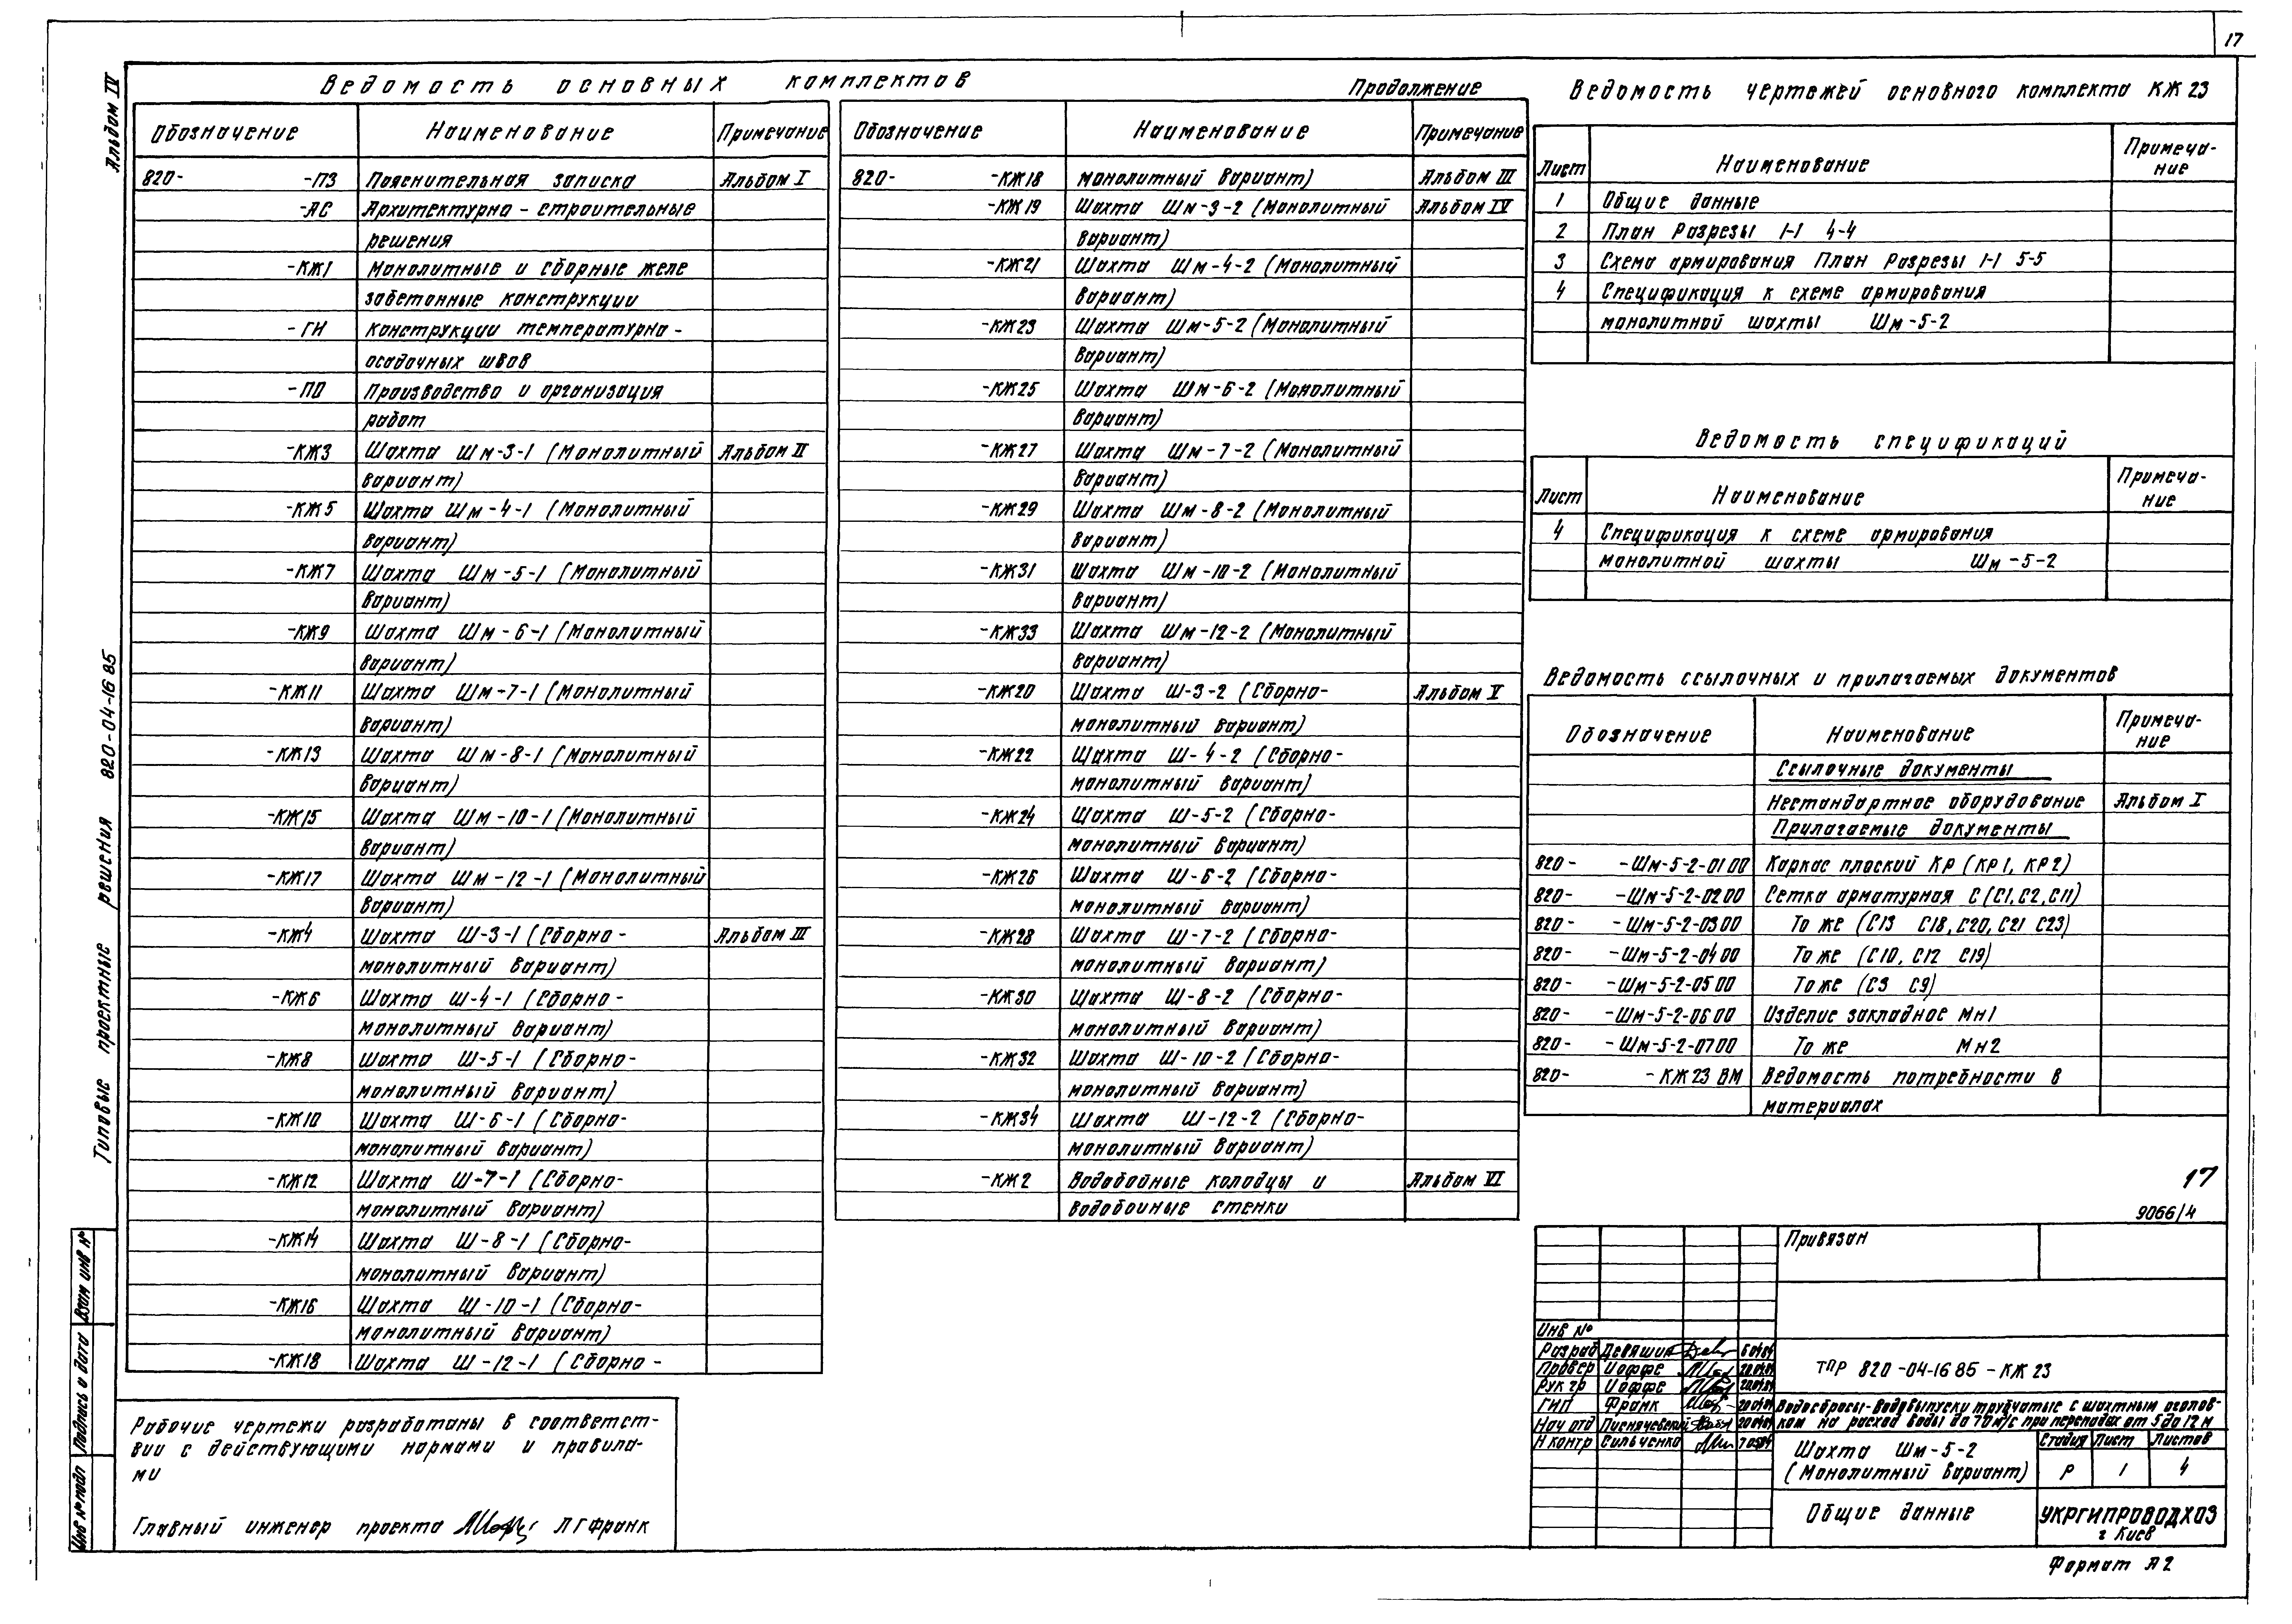 17
Альбом IV
Типовые проектные решения 820-04-16 85
Взам инв №
Подпись и дата
Инв № подл
Ведомость основных комплектов
Обозначение Наименование Примечание
820- -ПЗ Пояснительная записка Альбом I
-АС Архитектурно - строительные
решения
-КЖ1 Монолитные и сборные желе
забетонные конструкции
-ГН Конструкции температурно -
осадочных швов
-ПО Производство и организация
работ
-КЖ3 Шахта Шм-3-1 (Монолитный Альбом II
вариант)
-КЖ5 Шахта Шм-4-1 (Монолитный
вариант)
-КЖ7 Шахта Шм-5-1 (Монолитный
вариант)
-КЖ9 Шахта Шм-6-1 (Монолитный
вариант)
-КЖ11 Шахта Шм-7-1 (Монолитный
вариант)
-КЖ13 Шахта Шм-8-1 (Монолитный
вариант)
-КЖ15 Шахта Шм-10-1 (Монолитный
вариант)
-КЖ17 Шахта Шм-12-1 (Монолитный
вариант)
-КЖ4 Шахта Ш-3-1 (Сборно - Альбом III
монолитный вариант)
-КЖ6 Шахта Ш-4-1 (Сборно -
монолитный вариант)
-КЖ8 Шахта Ш-5-1 (Сборно-
монолитный вариант)
-КЖ10 Шахта Ш-6-1 (Сборно-
монолитный вариант)
-КЖ12 Шахта Ш-7-1 (Сборно-
монолитный вариант)
-КЖ14 Шахта Ш-8-1 (Сборно-
монолитный вариант)
-КЖ16 Шахта Ш-10-1 (Сборно-
монолитный вариант)
-КЖ18 Шахта Ш-12-1 (Сборно -
Продолжение
Обозначение Наименование Примечание
820- -КЖ18 монолитный вариант) Альбом III
-КЖ19 Шахта Шм-3-2 (Монолитный Альбом IV
вариант)
-КЖ21 Шахта Шм-4-2 (Монолитный
вариант)
-КЖ23 Шахта Шм-5-2 (Монолитный
вариант)
-КЖ25 Шахта Шм-6-2 (Монолитный
вариант)
-КЖ27 Шахта Шм-7-2 (Монолитный
вариант)
-КЖ29 Шахта Шм-8-2 (Монолитный
вариант)
-КЖ31 Шахта Шм-10-2 (Монолитный
вариант)
-КЖ33 Шахта Шм-12-2 (Монолитный
вариант)
-КЖ20 Шахта Ш-3-2 (Сборно- Альбом V
монолитный вариант)
-КЖ22 Шахта Ш-4-2 (Сборно-
монолитный вариант)
-КЖ24 Шахта Ш-5-2 (Сборно-
монолитный вариант)
-КЖ26 Шахта Ш-6-2 (Сборно-
монолитный вариант)
-КЖ28 Шахта Ш-7-2 (Сборно-
монолитный вариант)
-КЖ30 Шахта Ш-8-2 (Сборно-
монолитный вариант)
-КЖ32 Шахта Ш-10-2 (Сборно-
монолитный вариант)
-КЖ34 Шахта Ш-12-2 (Сборно-
монолитный вариант)
-КЖ2 Водобойные колодцы и Альбом VI
водобоиные стенки
Ведомость чертежей основного комплекта КЖ 23
Лист Наименование Примеча-
ние
1 Общие данные
2 План Разрезы 1-1 4-4
3 Схема армирования План Разрезы 1-1 5-5
4 Спецификация к схеме армирования
монолитной шахты Шм-5-2
Ведомость спецификаций
Лист Наименование Примеча-
ние
4 Спецификация к схеме армирования
монолитной шахты Шм-5-2
Ведомость ссылочных и прилагаемых документов
Обозначение Наименование Примеча-
ние
Ссылочные документы
Нестандартное оборудование Альбом I
Прилагаемые документы
820- -Шм-5-2-01 00 Каркас плоский КР (КР1, КР2)
820- -Шм-5-2-02 00 Сетка арматурная С (С1, С2, С11)
820- -Шм-5-2-03 00 То же (С13 С18, С20, С21 С23)
820- -Шм-5-2-04 00 То же (С10, С12 С19)
820- -Шм-5-2-05 00 То же (С3 С9)
820- -Шм-5-2-06 00 Изделие закладное Мн1
820- -Шм-5-2-07 00 То же Мн2
820- -КЖ 23 ВМ Ведомость потребности в
материалах
17
9066/4
Привязан
Инв №
Разраб Девяшин
Провер Иоффе
Рук гр Иоффе
ГИП Франк
Нач отд
Н контр Сильченко
ТПР 820-04-16 85 - КЖ 23
Водосбросы-водовыпуски трубчатые с шахтным оголов-
ком на расход воды до 70 м/с при перепадах от 5 до 12 м
Шахта Шм-5-2
(Монолитный вариант)
Стадия Лист Листов
Р 1 4
Общие данные
УКРГИПРОВОДХОЗ
г Киев
Формат А2
Рабочие чертежи разработаны в соответст-
вии с действующими нормами и правила-
ми
Главный инженер проекта Л Г Франк